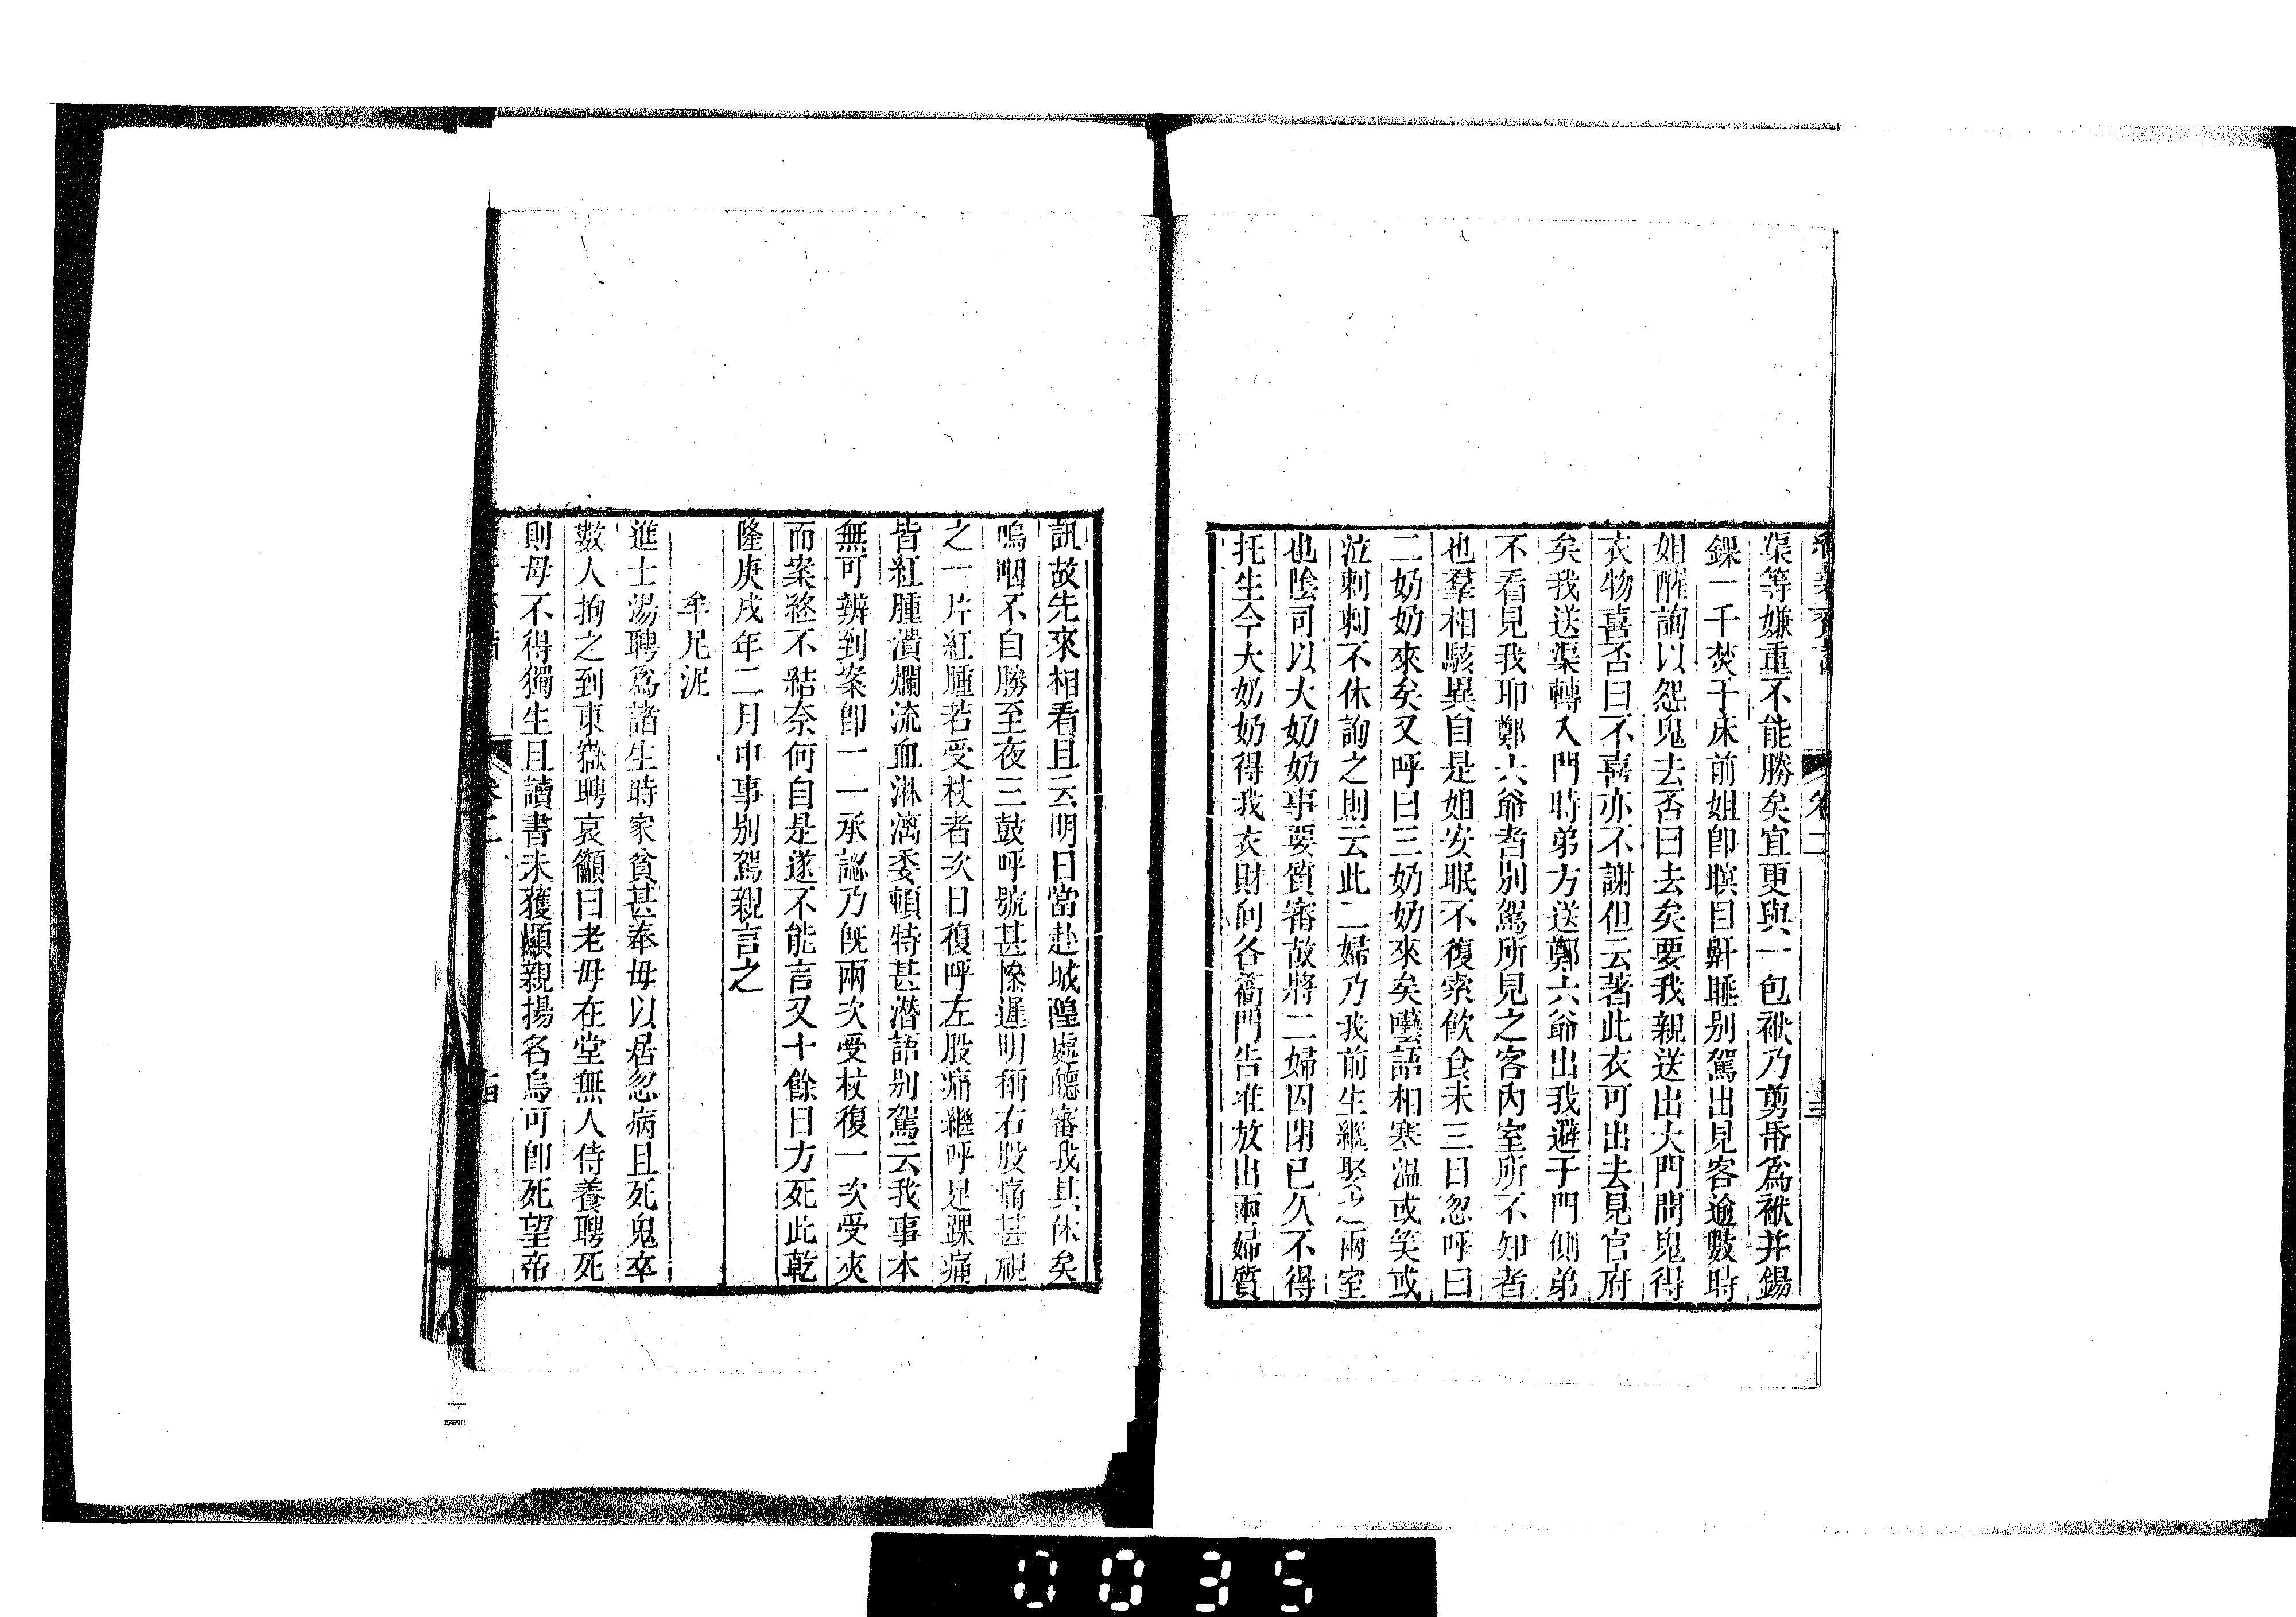 卷二
渠等嫌重不能勝矣宜更與一包袱乃剪帋爲袱并錫
錁一千焚于床前姐卽瞑目鼾睡别駕出見客逾數時
姐醒詢以怨鬼去否曰去矣要我親送出大門問鬼得
衣物喜否曰不喜亦不謝但云著此衣可出去見官府
矣我送渠轉入門時弟方送鄭六爺出我避于門側弟
不看見我耶鄭六爺者别駕所見之客內室所不知者
也羣相駭異自是姐安眠不復索飲食未三日忽呼曰
二奶奶來矣又呼曰三奶奶來矣囈語相寒温或笑或
泣刺刺不休詢之則云此二婦乃我前生繼娶之兩室
也陰司以大奶奶事要質審故將二婦囚閉已久不得
托生今大奶奶得我衣財向各衙門告准放出兩婦質
訊故先來相看且云明日當赴城隍處聽審我其休矣
嗚咽不自勝至夜三鼓呼號甚慘遲明稱右股痛甚視
之一片紅腫若受杖者次日復呼左股痛繼呼足踝痛
皆紅腫潰爛流血淋漓委頓特甚潛語别駕云我事本
無可辨到案卽一一承認乃旣兩次受杖復一次受夾
而案終不結奈何自是遂不能言又十餘日方死此乾
隆庚戌年二月中事别駕親言之
牟尼泥
進士湯聘爲諸生時家貧甚奉母以居忽病且死鬼卒
數人拘之到東嶽聘哀籲曰老母在堂無人侍養聘死
則母不得獨生且讀書未獲顯親揚名烏可卽死望帝
卷二
0035